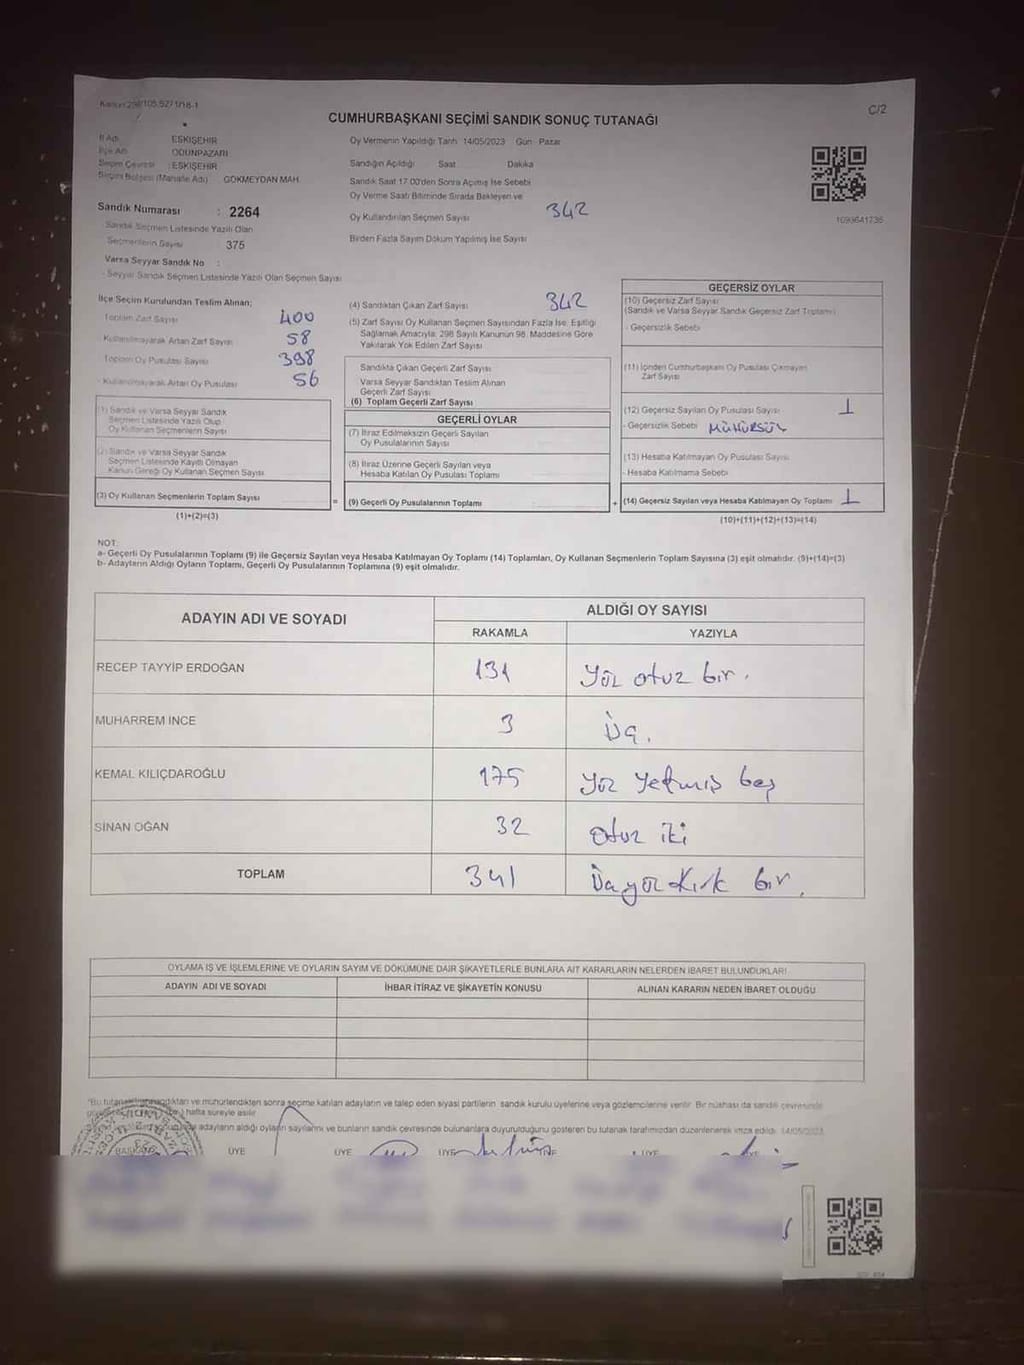 C/2
CUMHURBAŞKANI SEÇİMİ SANDIK SONUÇ TUTANAĞI
İl Adı ESKİŞEHİR
İlçe Adı ODUNPAZARI
Seçim Çevresi : ESKİŞEHİR
Seçim Bölgesi (Mahalle Adı) GÖKMEYDAN MAH.
Sandık Numarası : 2264
Sandık Seçmen Listesinde Yazılı Olan
Seçmenlerin Sayısı 375
Varsa Seyyar Sandık No :
- Seyyar Sandık Seçmen Listesinde Yazılı Olan Seçmen Sayısı
Oy Vermenin Yapıldığı Tarih 14/05/2023 Gün Pazar
Sandığın Açıldığı Saat Dakika
Sandık Saat 17.00'den Sonra Açılmış İse Sebebi
Oy Verme Saati Bitiminde Sırada Bekleyen ve
Oy Kullandırılan Seçmen Sayısı 342
Birden Fazla Sayım Döküm Yapılmış İse Sayısı
1099641736
İlçe Seçim Kurulundan Teslim Alınan;
Toplam Zarf Sayısı 400
- Kullanılmayarak Artan Zarf Sayısı 58
Toplam Oy Pusulası Sayısı 398
- Kullanılmayarak Artan Oy Pusulası 56
(1) Sandık ve Varsa Seyyar Sandık
Seçmen Listesinde Yazılı Olup
Oy Kullanan Seçmenlerin Sayısı
(2) Sandık ve Varsa Seyyar Sandık
Seçmen Listesinde Kayıtlı Olmayan
Kanun Gereği Oy Kullanan Seçmen Sayısı
(3) Oy Kullanan Seçmenlerin Toplam Sayısı
(1)+(2)=(3)
(4) Sandıktan Çıkan Zarf Sayısı 342
(5) Zarf Sayısı Oy Kullanan Seçmen Sayısından Fazla İse, Eşitliği
Sağlamak Amacıyla, 298 Sayılı Kanunun 98. Maddesine Göre
Yakılarak Yok Edilen Zarf Sayısı
Sandıkta Çıkan Geçerli Zarf Sayısı
Varsa Seyyar Sandıktan Teslim Alınan
Geçerli Zarf Sayısı
(6) Toplam Geçerli Zarf Sayısı
GEÇERLİ OYLAR
(7) İtiraz Edilmeksizin Geçerli Sayılan
Oy Pusulalarının Sayısı
(8) İtiraz Üzerine Geçerli Sayılan veya
Hesaba Katılan Oy Pusulası Toplamı
= (9) Geçerli Oy Pusulalarının Toplamı +
GEÇERSİZ OYLAR
(10) Geçersiz Zarf Sayısı
(Sandık ve Varsa Seyyar Sandık Geçersiz Zarf Toplamı)
- Geçersizlik Sebebi
(11) İçinden Cumhurbaşkanı Oy Pusulası Çıkmayan
Zarf Sayısı
(12) Geçersiz Sayılan Oy Pusulası Sayısı 1
- Geçersizlik Sebebi MÜHÜRSÜZ
(13) Hesaba Katılmayan Oy Pusulası Sayısı
- Hesaba Katılmama Sebebi
(14) Geçersiz Sayılan veya Hesaba Katılmayan Oy Toplamı 1
(10)+(11)+(12)+(13)=(14)
NOT:
a- Geçerli Oy Pusulalarının Toplamı (9) ile Geçersiz Sayılan veya Hesaba Katılmayan Oy Toplamı (14) Toplamları, Oy Kullanan Seçmenlerin Toplam Sayısına (3) eşit olmalıdır. (9)+(14)=(3)
b- Adayların Aldığı Oyların Toplamı, Geçerli Oy Pusulalarının Toplamına (9) eşit olmalıdır.
ADAYIN ADI VE SOYADI ALDIĞI OY SAYISI
RAKAMLA YAZIYLA
RECEP TAYYİP ERDOĞAN 131 Yüz otuz bir.
MUHARREM İNCE 3 Üç.
KEMAL KILIÇDAROĞLU 175 Yüz yetmiş beş
SİNAN OĞAN 32 otuz iki
TOPLAM 341 Üçyüz Kırk bir.
OYLAMA İŞ VE İŞLEMLERİNE VE OYLARIN SAYIM VE DÖKÜMÜNE DAİR ŞİKAYETLERLE BUNLARA AİT KARARLARIN NELERDEN İBARET BULUNDUKLARI
ADAYIN ADI VE SOYADI İHBAR İTİRAZ VE ŞİKAYETİN KONUSU ALINAN KARARIN NEDEN İBARET OLDUĞU
ve mühürlendikten sonra seçime katılan adayların ve talep eden siyasi partilerin sandık kurulu üyelerine veya gözlemcilerine verilir. Bir nüshası da sandık çevresinde
hafta süreyle asılır
adayların aldığı oyların sayılarını ve bunların sandık çevresinde bulunanlara duyurulduğunu gösteren bu tutanak tarafımızdan düzenlenerek imza edildi. 14/05/2023
BAŞKAN ÜYE ÜYE ÜYE ÜYE